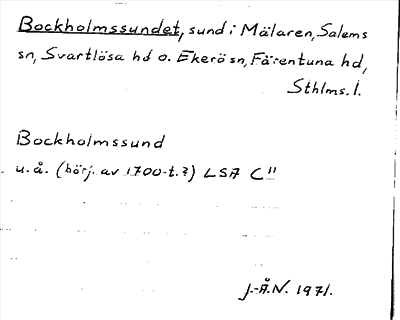 Bockholmssundet, sund i Mälaren, Salems
sn, Svartlösa hd o. Ekerö sn, Färentuna hd,
Sthlms. l.
Bockholmssund
u.å. (börj. av 1700-t.?) LSA C"
J.-Å.N. 1971.